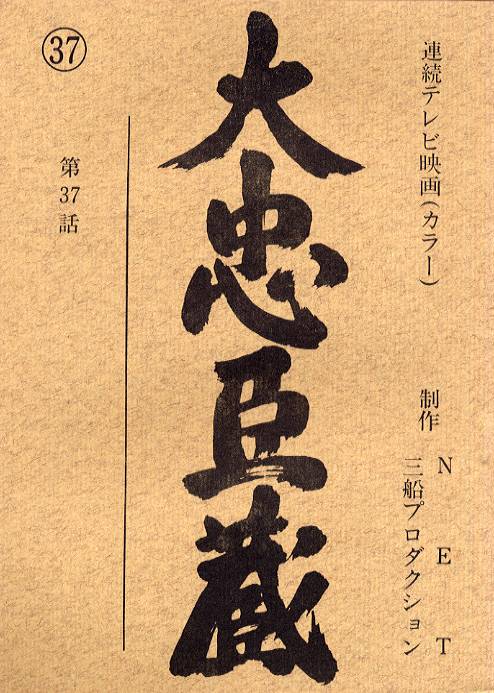 連続テレビ映画(カラー)
制作 NET
三船プロダクション
大忠臣蔵
第37話
㊲